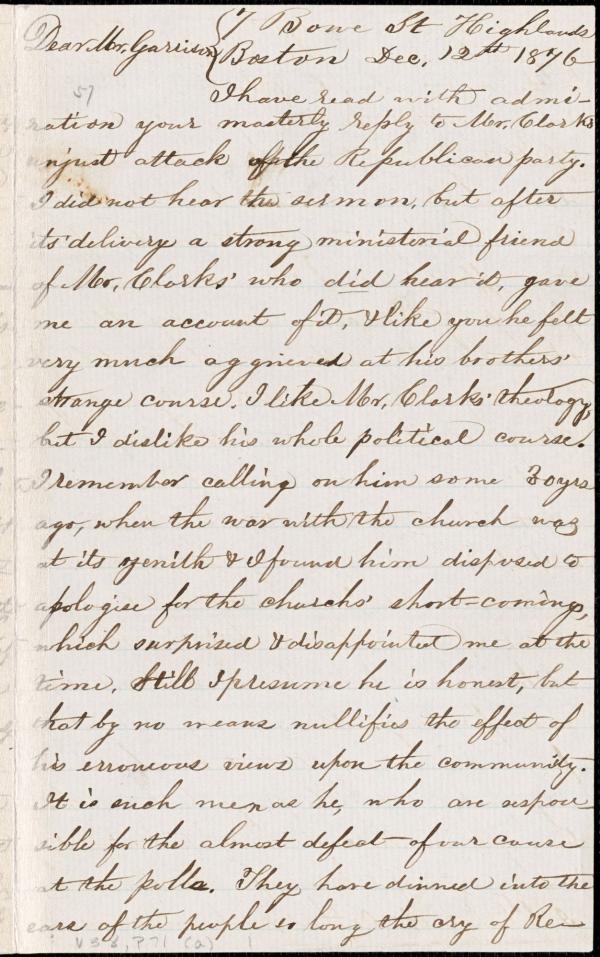 7 Bowe St Highlands
Dear Mr. Garrison Boston Dec. 12th 1876
57
I have read with admi-
ration your masterly reply to Mr. Clarks
unjust attack of the Republican party.
I did not hear the sermon, but after
its delivery a strong ministerial friend
of Mr. Clarks' who did hear it, gave
me an account of it, & like you he felt
very much aggrieved at his brothers'
strange course. I like Mr. Clarks' theology,
but I dislike his whole political course.
I remember calling on him some 30 yrs
ago, when the war with the church was
at its zenith & I found him disposed to
apologise for the churchs' short-comings,
which surprised & disappointed me at the
time. Still I presume he is honest, but
that by no means nullifies the effect of
his erroneous views upon the community.
It is such men as he, who are respon-
sible for the almost defeat of our cause
at the polls. They have dinned into the
ears of the people so long the cry of Re-
V38, P71 (a) 1